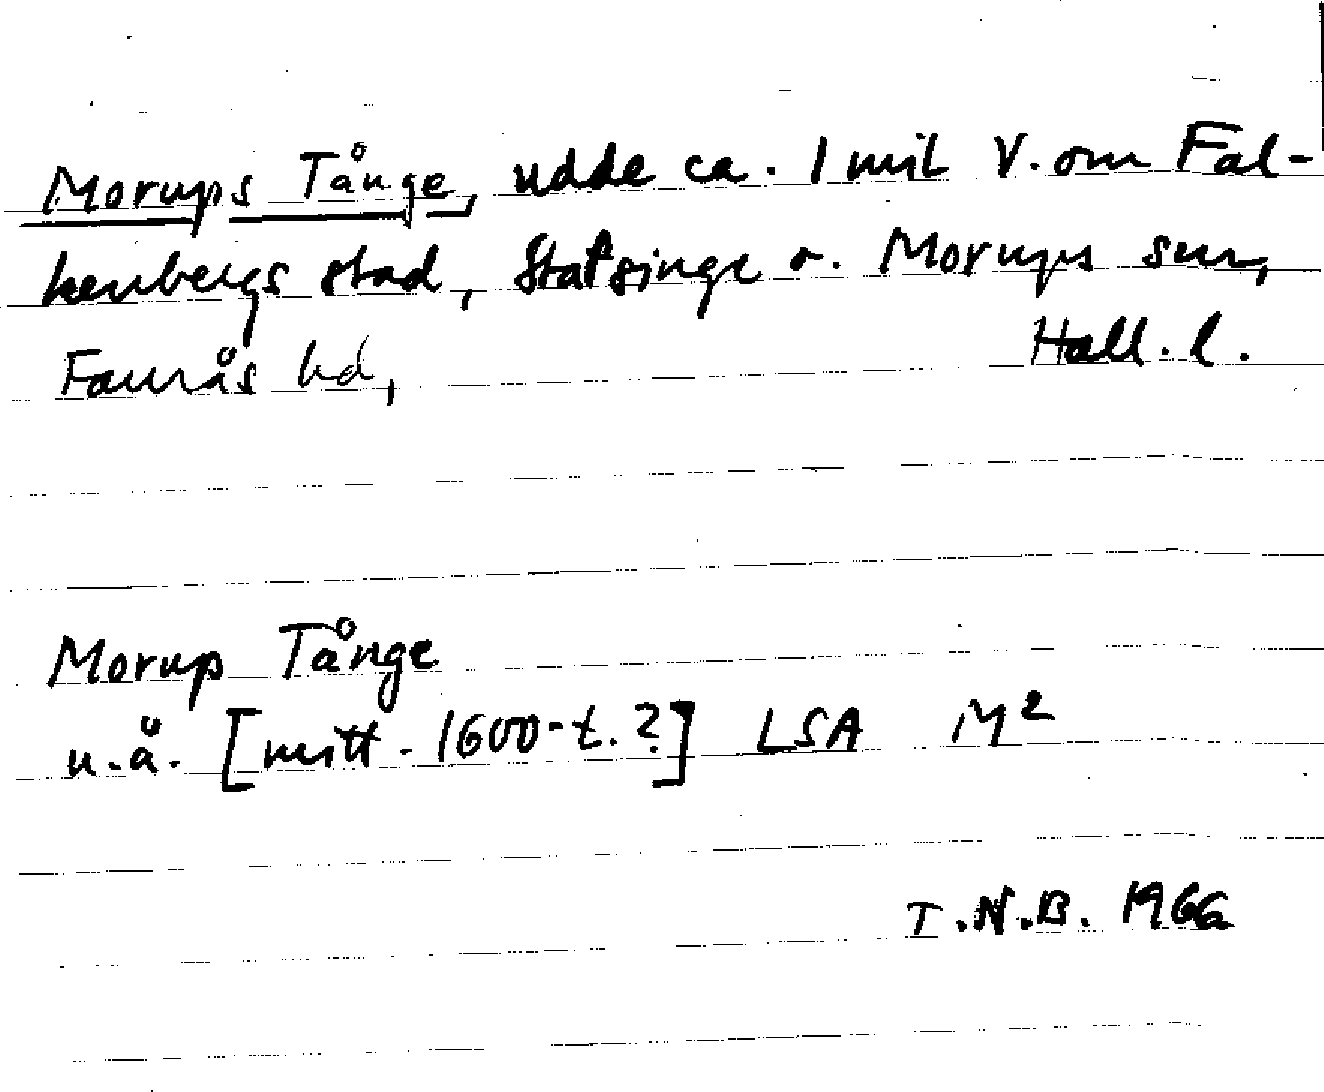 Morups Tånge, udde ca. 1 mil V. om Fal-
kenbergs stad, Stafsinge o. Morups snr,
Faurås hd, Hall. l.
Morup Tånge
u.å. [mitt. 1600-t.?] LSA M²
T.N.B. 1966